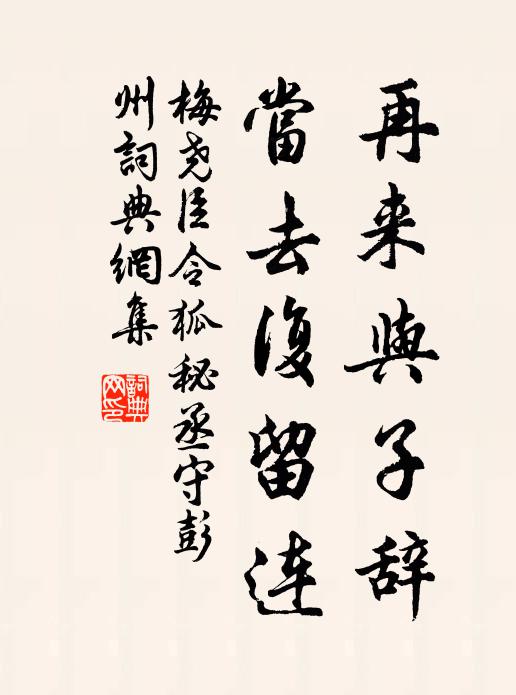 再来與子辞
當去復留連
梅尧臣令狐秘丞守彭
州詞典網集
詞典网印